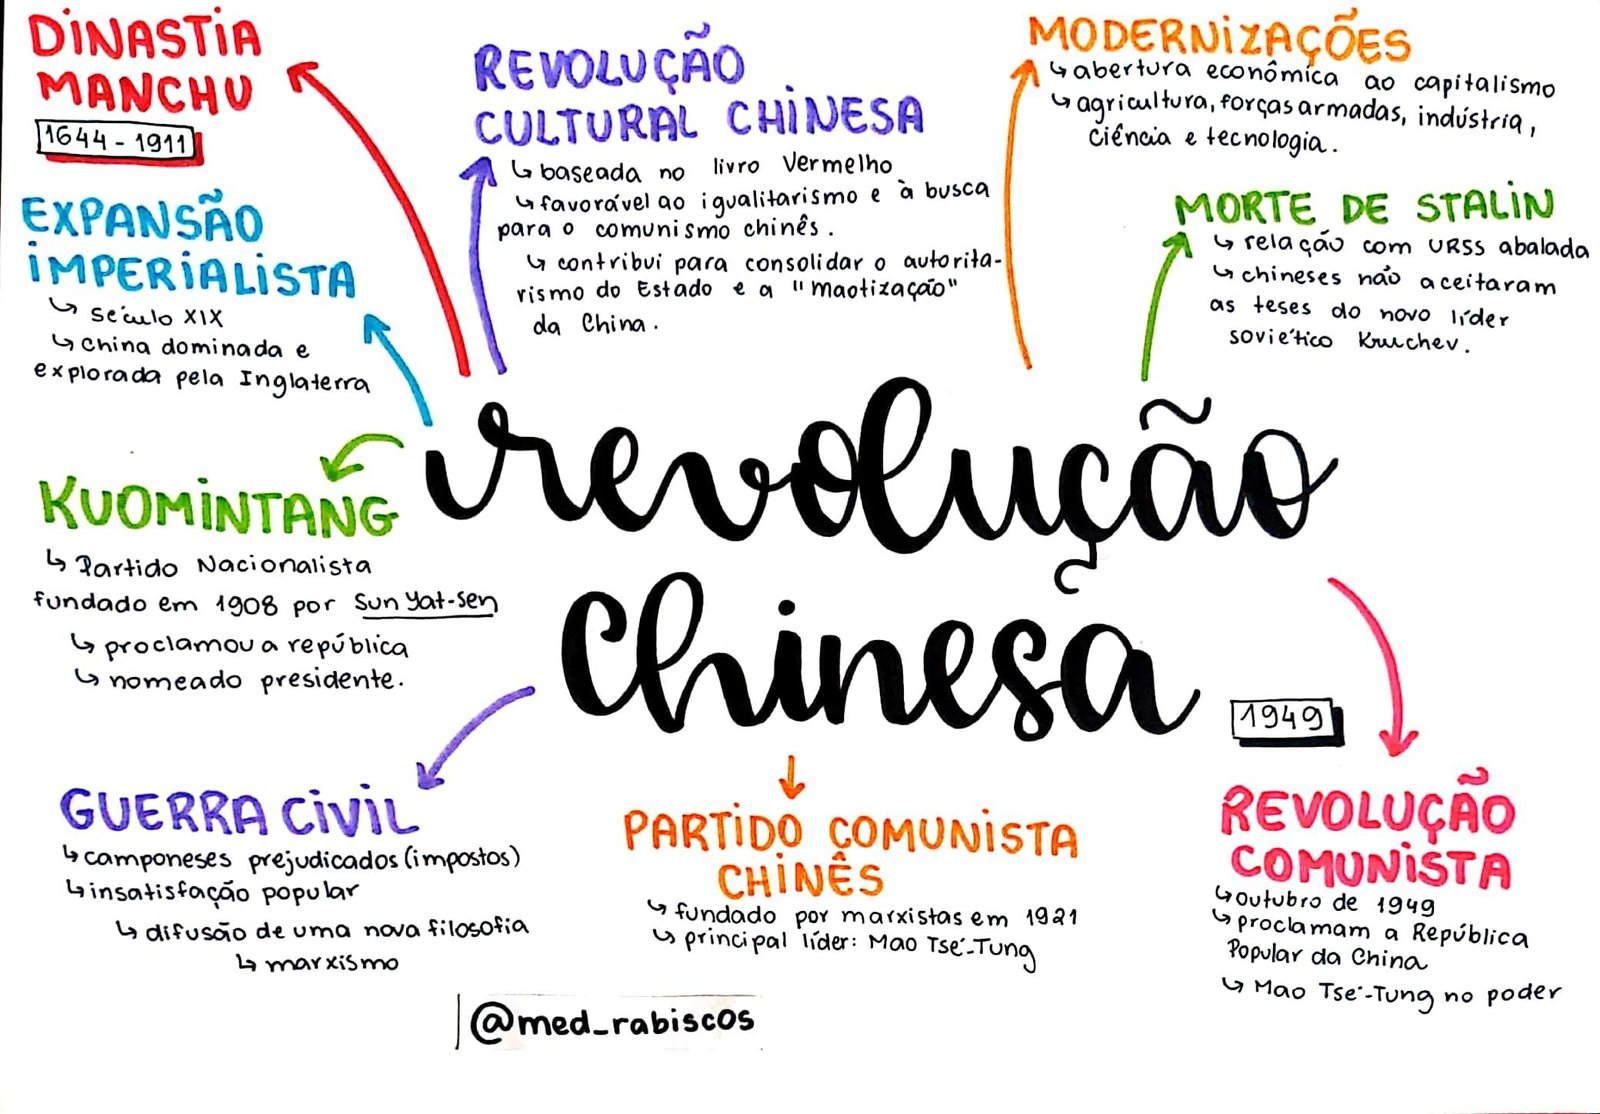 DINASTIA
MANCHU
1644 - 1911
EXPANSÃO
IMPERIALISTA
↳ século XIX
↳ china dominada e
explorada pela Inglaterra
KUOMINTANG
↳ Partido Nacionalista
fundado em 1908 por Sun Yat-Sen
↳ proclamou a república
↳ nomeado presidente.
GUERRA CIVIL
↳ camponeses prejudicados (impostos)
↳ insatisfação popular
↳ difusão de uma nova filosofia
↳ marxismo
REVOLUÇÃO
CULTURAL CHINESA
↳ baseada no livro Vermelho
↳ favorável ao igualitarismo e à busca
para o comunismo chinês.
↳ contribui para consolidar o autorita-
rismo do Estado e a "maotização"
da China.
MODERNIZAÇÕES
↳ abertura econômica ao capitalismo
↳ agricultura, forças armadas, indústria,
ciência e tecnologia.
MORTE DE STALIN
↳ relação com URSS abalada
↳ chineses não aceitaram
as teses do novo líder
soviético Kruchev.
revolução
chinesa
1949
PARTIDO COMUNISTA
CHINÊS
↳ fundado por marxistas em 1921
↳ principal líder: Mao Tsé-Tung
REVOLUÇÃO
COMUNISTA
↳ outubro de 1949
↳ proclamam a República
Popular da China
↳ Mao Tsé-Tung no poder
@med_rabiscos